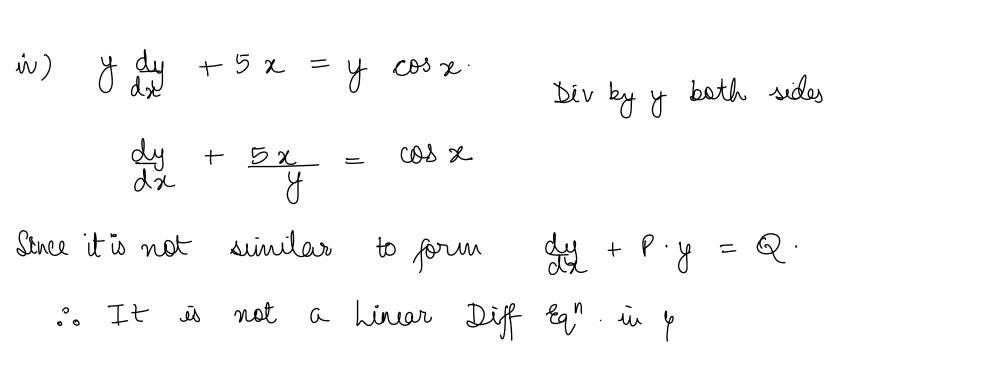 iv) y dy/dx + 5x = y cos x.
Div by y both sides
dy/dx + 5x/y = cos x
Since it is not similar to form dy/dx + P·y = Q.
∴ It is not a Linear Diff Eqⁿ. in y